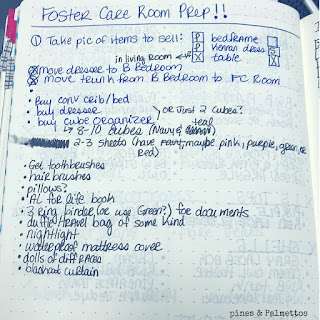 FOSTER CARE ROOM PREP!!
① Take pic of items to sell: P bedframe
P Kenyan dress
in living room X table
move dresser to B Bedroom
move trunk from B Bedroom to FC Room
buy conv crib/bed
buy dresser or just 2 cubes?
buy cube organizer teal
→ 8-10 cubes (Navy &
2-3 sheets (have maybe pink, purple, green, or
Red)
• Get toothbrushes
• hair brushes
• pillows?
• for life book
• 3 ring binder (or use Green?) for documents
• duffle/travel bag of some kind
• nightlight
• waterproof mattress cover
• dolls of diff RACES
• blackout curtain
pines & Palmettos